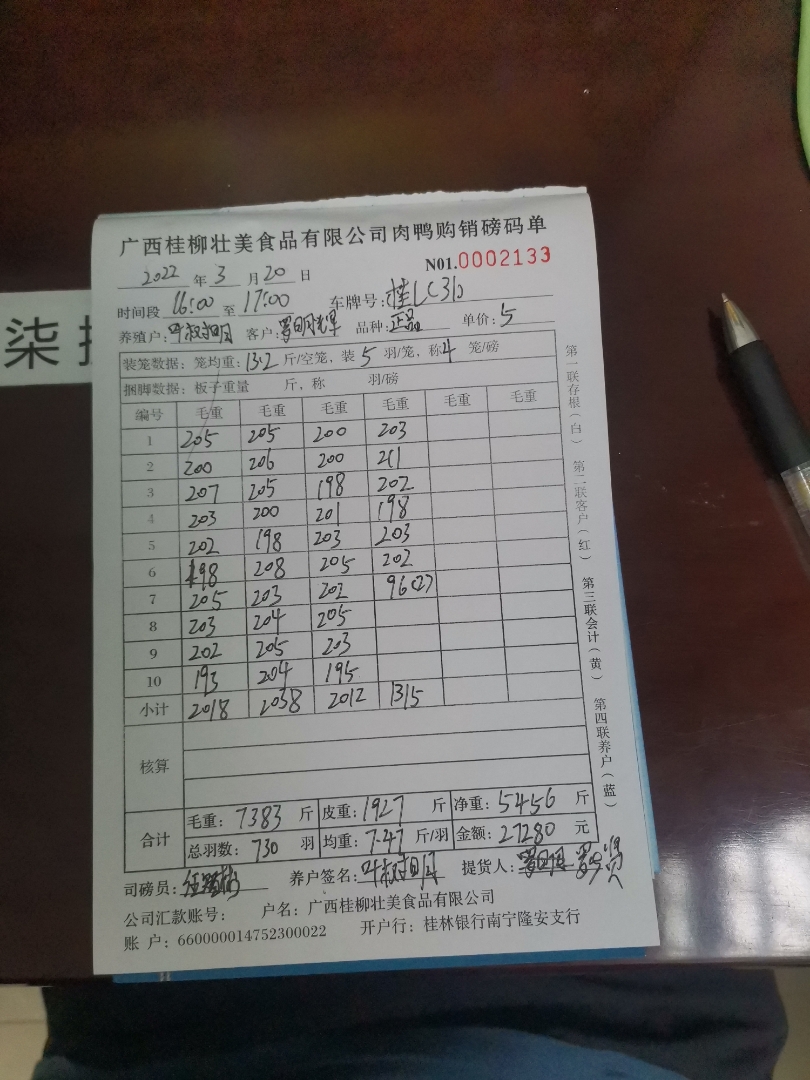 广西桂柳壮美食品有限公司肉鸭购销磅码单
2022 年 3 月 20 日 N01.0002133
时间段 16:00 至 17:00 车牌号:桂LC310
养殖户:叶叔明 客户:罗明辉 品种:正品 单价:5
装笼数据:笼均重:13.2 斤/空笼,装 5 羽/笼,称 4 笼/磅
捆脚数据:板子重量 斤,称 羽/磅
编号 毛重 毛重 毛重 毛重 毛重 毛重
1 205 205 200 203
2 200 206 200 211
3 207 205 198 202
4 203 200 201 198
5 202 198 203 203
6 198 208 205 202
7 205 203 202 96(2)
8 203 204 205
9 202 205 203
10 193 204 195
小计 2018 2038 2012 1315
核算
合计
毛重:7383 斤 皮重:1927 斤 净重:5456 斤
总羽数:730 羽 均重:7.47 斤/羽 金额:27280 元
司磅员: 养户签名:叶叔明 提货人:
公司汇款账号: 户名:广西桂柳壮美食品有限公司
账 户:660000014752300022 开户行:桂林银行南宁隆安支行
第一联存根(白) 第二联客户(红) 第三联会计(黄) 第四联养户(蓝)
柒